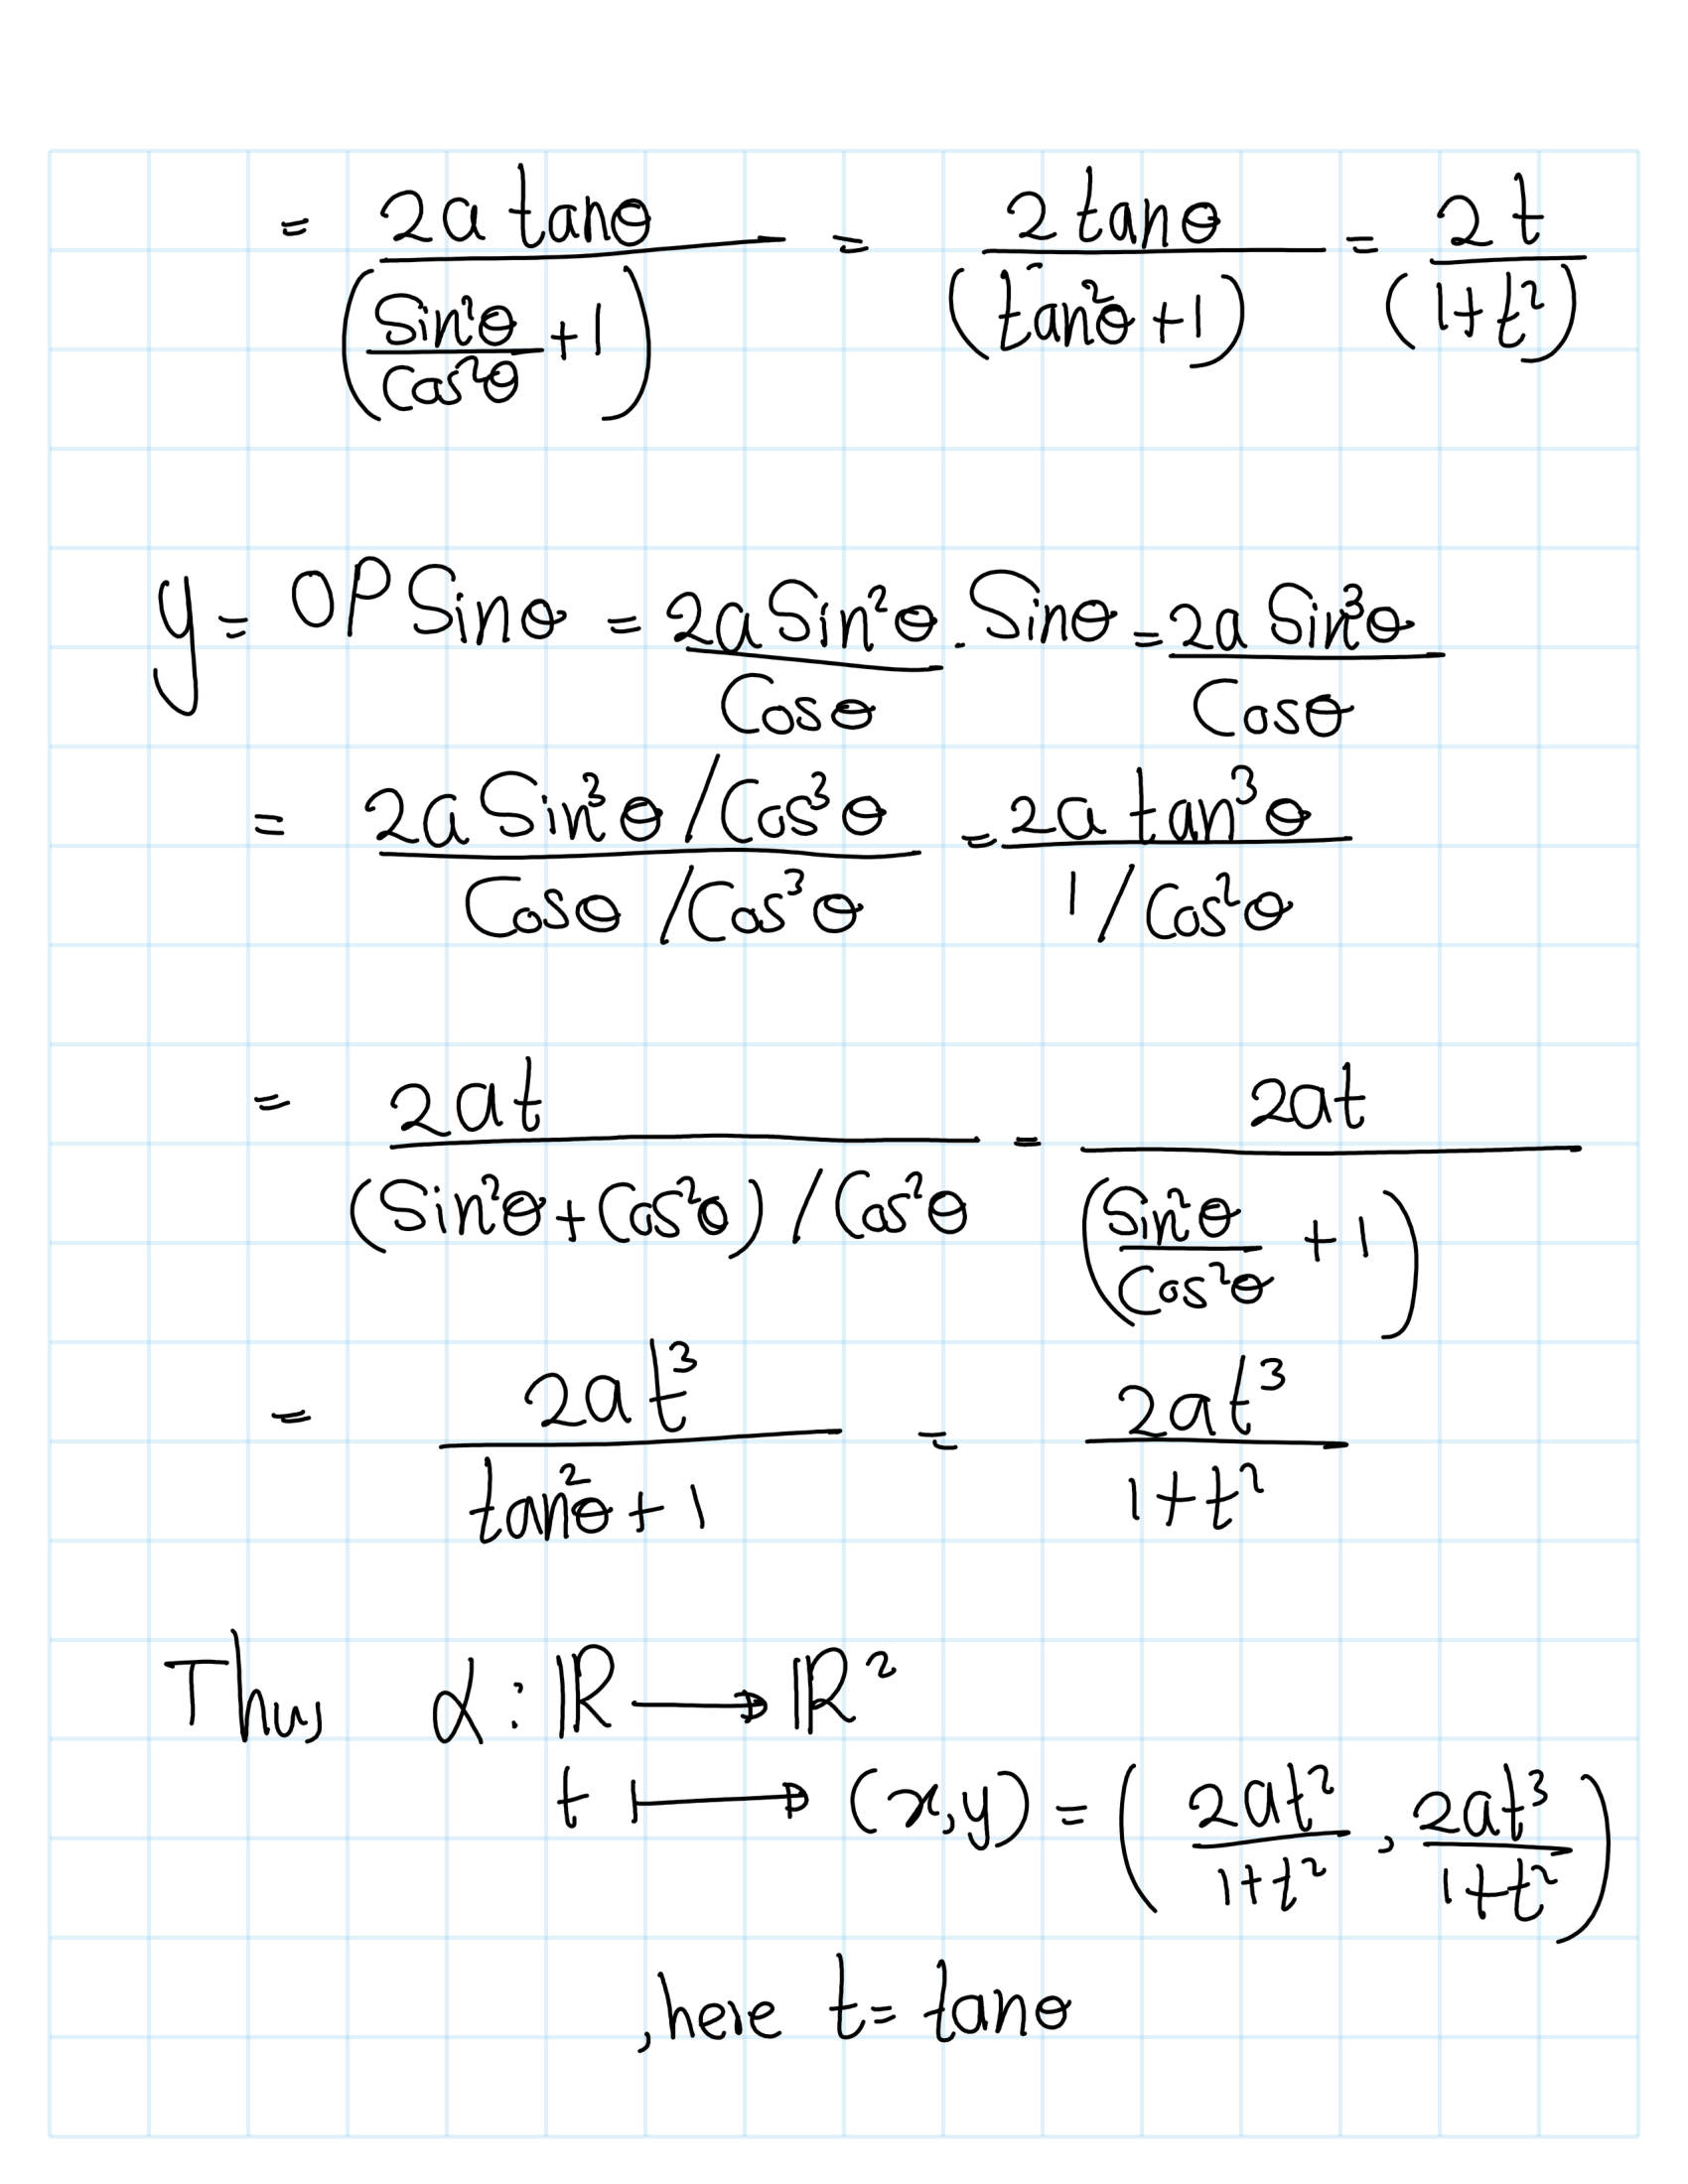 = 2a tanθ / (Sin²θ/Cos²θ + 1) = 2 tanθ / (tan²θ + 1) = 2t / (1+t²)
y = OP Sinθ = 2a Sin²θ / Cosθ . Sinθ = 2a Sin³θ / Cosθ
= (2a Sin³θ / Cos³θ) / (Cosθ / Cos³θ) = 2a tan³θ / (1 / Cos²θ)
= 2at / ((Sin²θ + Cos²θ) / Cos²θ) = 2at / (Sin²θ/Cos²θ + 1)
= 2at³ / (tan²θ + 1) = 2at³ / (1+t²)
Thus α : ℝ → ℝ²
t ↦ (x,y) = (2at² / (1+t²) , 2at³ / (1+t²))
, here t = tanθ